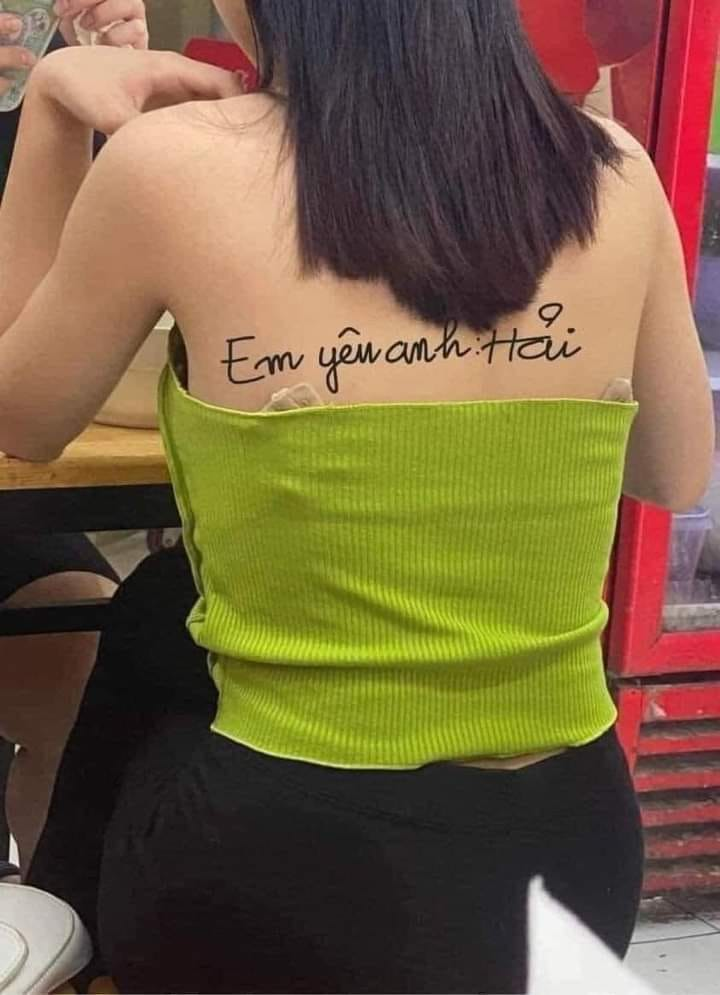 Em yêu anh: Hải